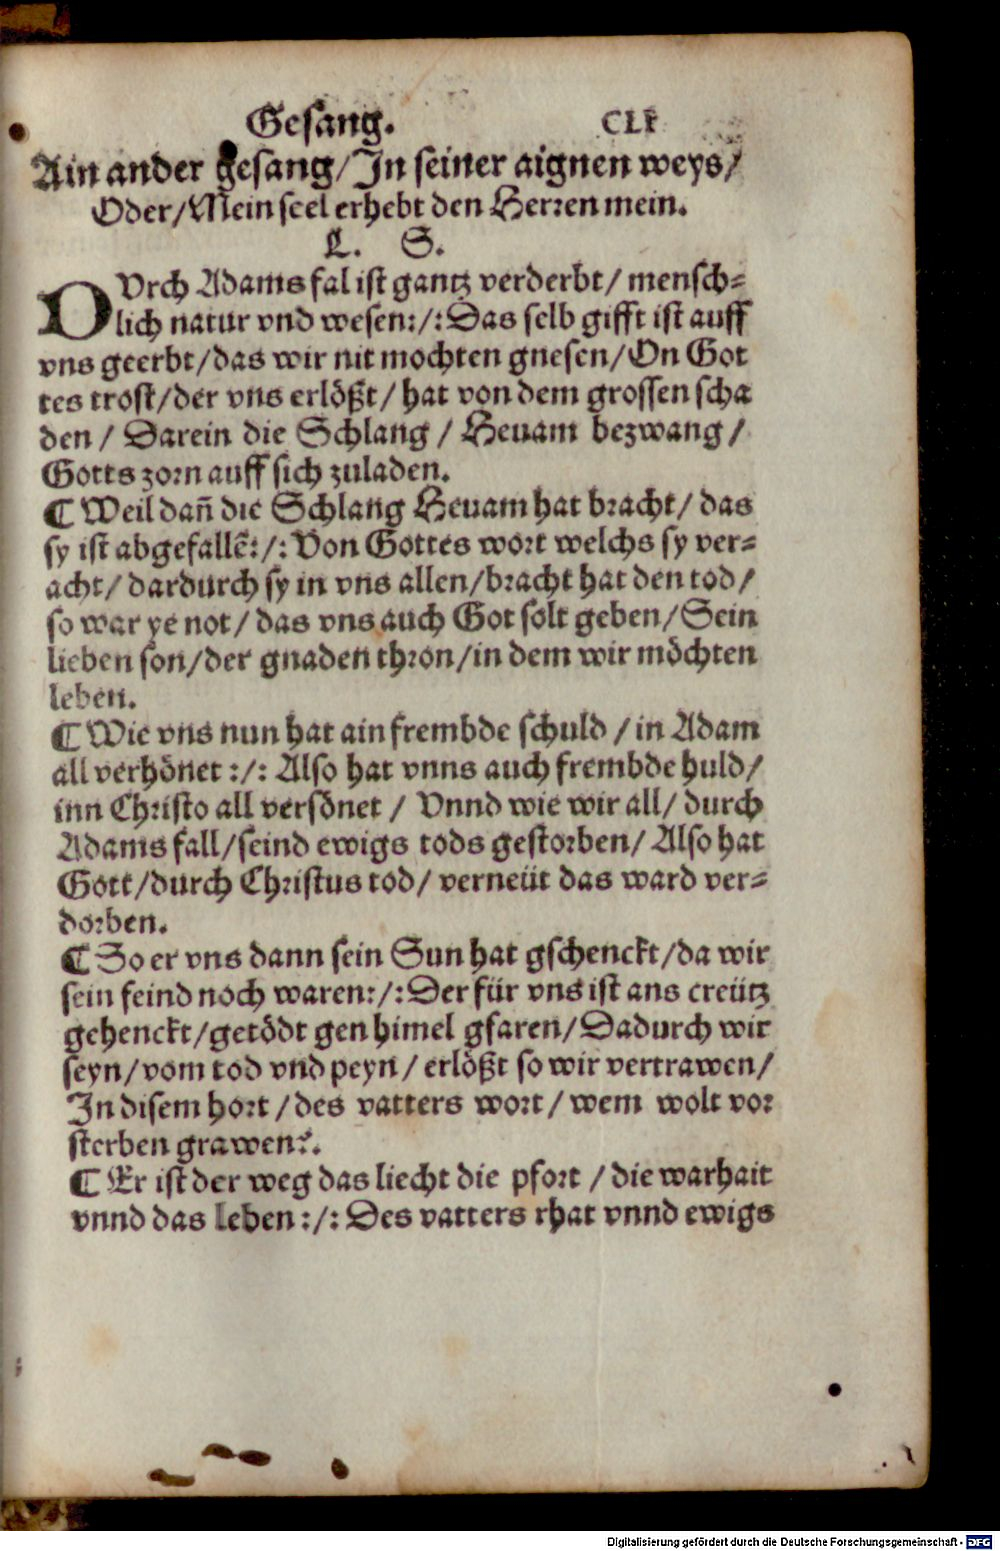 Gesang. CLI
Ain ander gesang/In seiner aignen weys/
Oder/Mein seel erhebt den Herren mein.
L. S.
DVrch Adams fal ist gantz verderbt/ mensch=
lich natur vnd wesen:/:Das selb gifft ist auff
vns geerbt/das wir nit mochten gnesen/On Got
tes trost/der vns erlößt/ hat von dem grossen scha
den/ Darein die Schlang/ Heuam bezwang/
Gotts zorn auff sich zuladen.
¶ Weil dañ die Schlang Heuam hat bracht/ das
sy ist abgefallē:/:Von Gottes wort welchs sy ver=
acht/ dardurch sy in vns allen/bracht hat den tod/
so war ye not/ das vns auch Got solt geben/Sein
lieben son/der gnaden thron/in dem wir möchten
leben.
¶ Wie vns nun hat ain frembde schuld/in Adam
all verhönet:/: Also hat vnns auch frembde huld/
inn Christo all versönet/ Vnnd wie wir all/ durch
Adams fall/seind ewigs tods gestorben/ Also hat
Gott/durch Christus tod/ verneüt das ward ver=
dorben.
¶ So er vns dann sein Sun hat gschenckt/da wir
sein feind noch waren:/:Der für vns ist ans creütz
gehenckt/getödt gen himel gfaren/Dadurch wir
seyn/vom tod vnd peyn/ erlößt so wir vertrawen/
In disem hort/des vatters wort/wem wolt vor
sterben grawen?.
¶ Er ist der weg das liecht die pfort/die warhait
vnnd das leben:/: Des vatters rhat vnnd ewigs
Digitalisierung gefördert durch die Deutsche Forschungsgemeinschaft - DFG